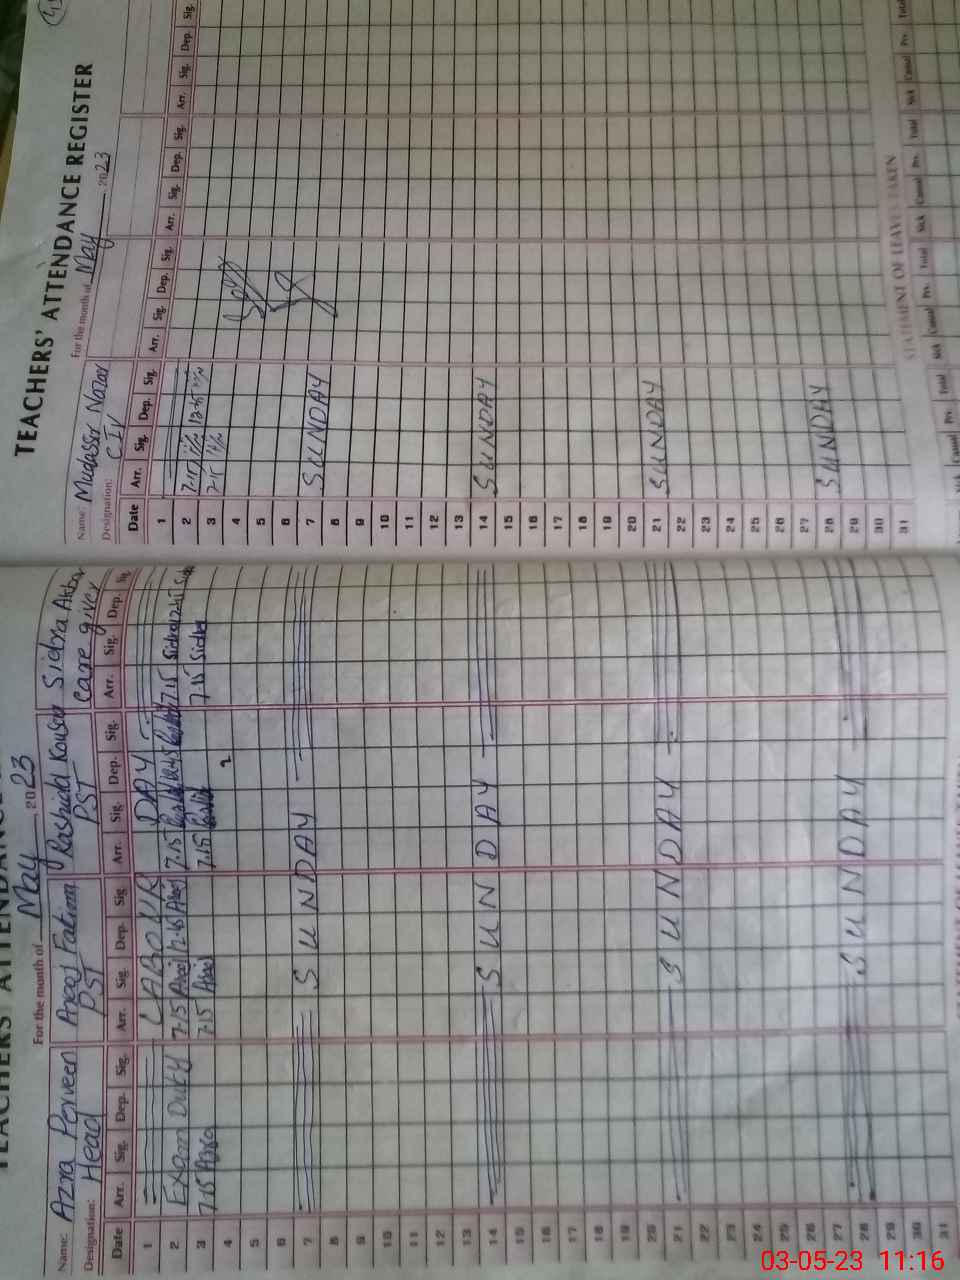 TEACHERS' ATTENDANCE
For the month of May 2023
Name: Azra Perveen Areej Fatima Rashida Kousar Sidra Akbar
Designation: Head PST PST Care giver
Date Arr. Sig. Dep. Sig. Arr. Sig. Dep. Sig. Arr. Sig. Dep. Sig. Arr. Sig. Dep. Sig.
1 LABOUR DAY
2 Exam Duty 7-15 Areej 12-45 Areej 7.15 12.45 7.15 Sidra 12.45 Sidra
3 7.15 Azra 7.15 Areej 7.15 7.15 Sidra
4
5
6
7 SUNDAY
8
9
10
11
12
13
14 SUNDAY
15
16
17
18
19
20
21 SUNDAY
22
23
24
25
26
27
28 SUNDAY
29
30
31
TEACHERS' ATTENDANCE REGISTER
For the month of May 2023
Name: Mudassir Nazar
Designation: C IV
Date Arr. Sig. Dep. Sig. Arr. Sig. Dep. Sig. Arr. Sig. Dep. Sig. Arr. Sig. Dep. Sig.
1
2 7-15 12-45
3 7-15
4
5
6
7 SUNDAY
8
9
10
11
12
13
14 SUNDAY
15
16
17
18
19
20
21 SUNDAY
22
23
24
25
26
27
28 SUNDAY
29
30
31
STATEMENT OF LEAVES TAKEN
Casual Prv. Total Sick Casual Prv. Total Sick Casual Prv. Total Sick Casual Prv. Total
03-05-23 11:16